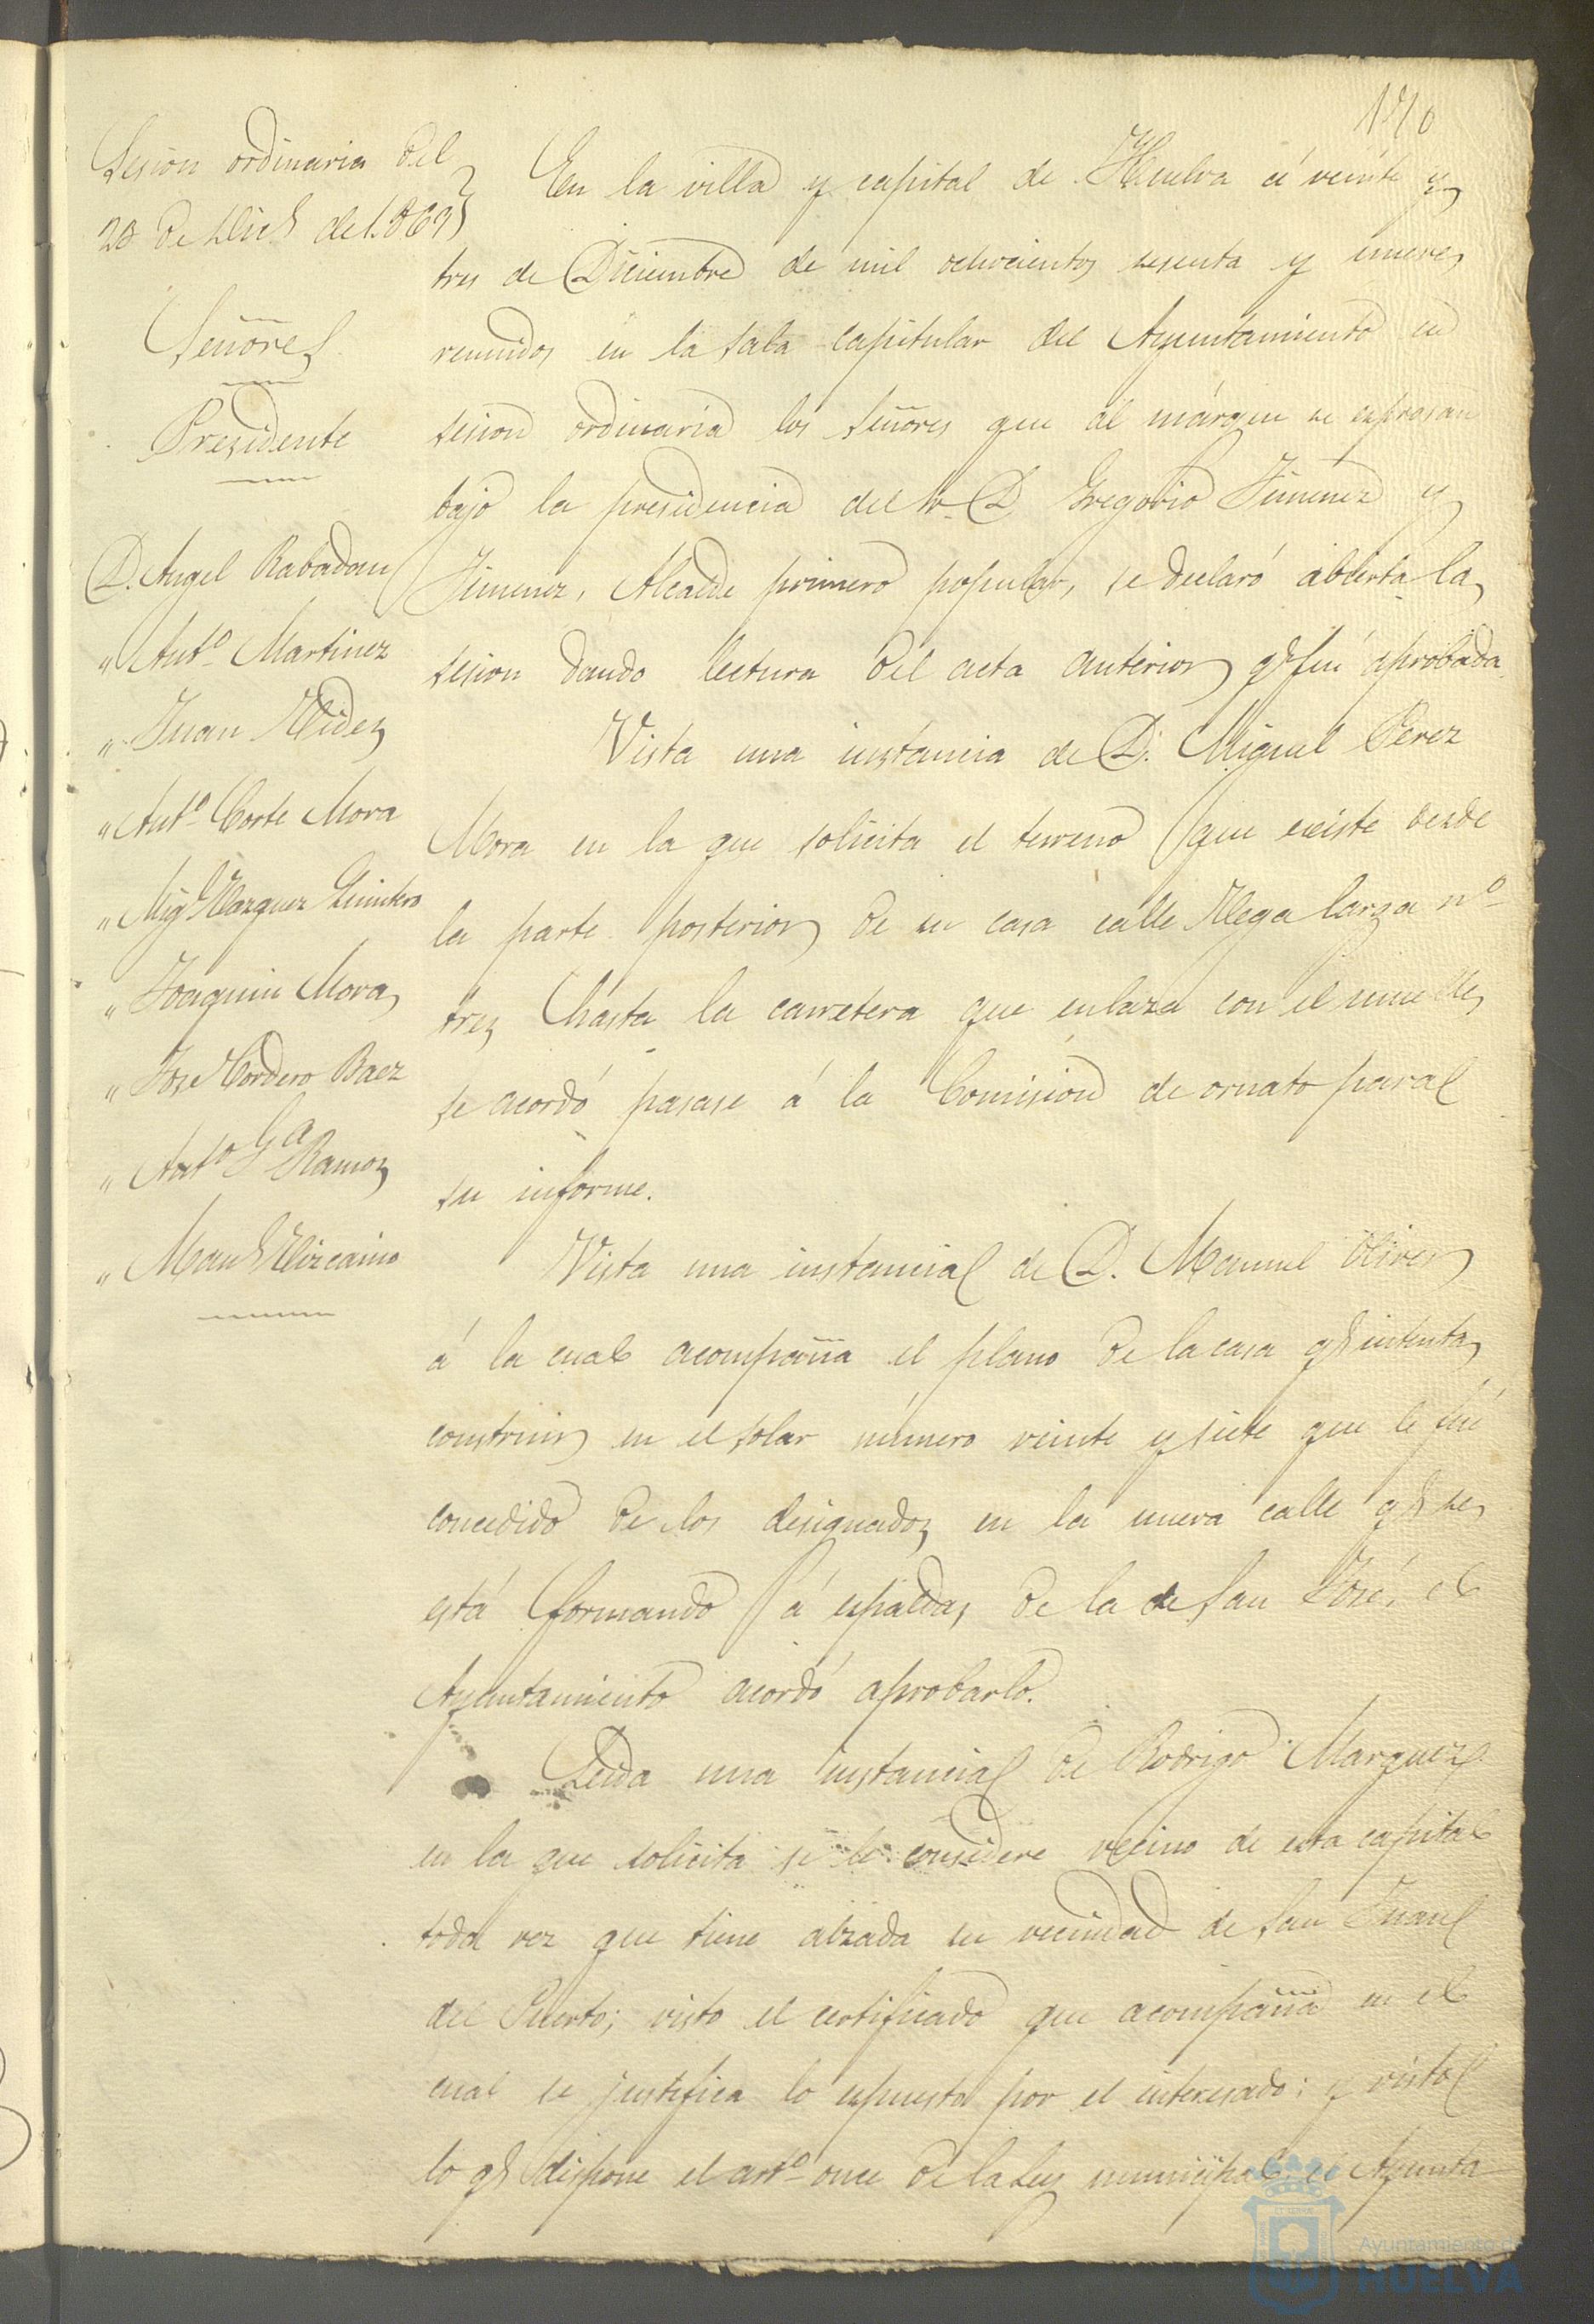 170
Sesion ordinaria del
23 de Dice de 1.869
Señores
Presidente
D. Angel Rabadan
" Antº Martinez
" Juan Videz
" Antº Corte Mora
" Migl Vazquez Quintero
" Joaquin Mora
" Jose Cordero Baez
" Antº Gª Ramos
" Manl Vizcaino
En la villa y capital de Huelva á veinte y
tres de Diciembre de mil ochocientos sesenta y nueve,
reunidos en la sala capitular del Ayuntamiento en
sesion ordinaria los señores que al márgen se espresan
bajo la presidencia del Sr. D. Gregorio Jimenez y
Jimenez, Alcalde primero popular, se declaró abierta la
sesion dando lectura del acta anterior qe fué aprobada.
Vista una instancia de D. Miguel Perez
Mora en la que solicita el terreno que existe desde
la parte posterior de su casa calle Vega larga nº
tres hasta la carretera que enlaza con el muelle,
se acordó pasase á la Comision de ornato para
su informe.
Vista una instancia de D. Manuel Oliver
á la cual acompaña el plano de la casa qe intenta
construir en el solar número veinte y siete que le fué
concedido de los designados en la nueva calle qe se
está formando á espaldas de la de San José, el
Ayuntamiento acordó aprobarlo.
Leida una instancia de Rodrigo Marquez
en la que solicita se le considere vecino de esta capital
toda vez que tiene alzada su vecindad de San Juan
del Puerto; visto el certificado que acompaña en el
cual se justifica lo espuesto por el interesado; y visto
lo qe dispone el artº once de la Ley municipal, el Ayunta
Ayuntamiento de
HUELVA